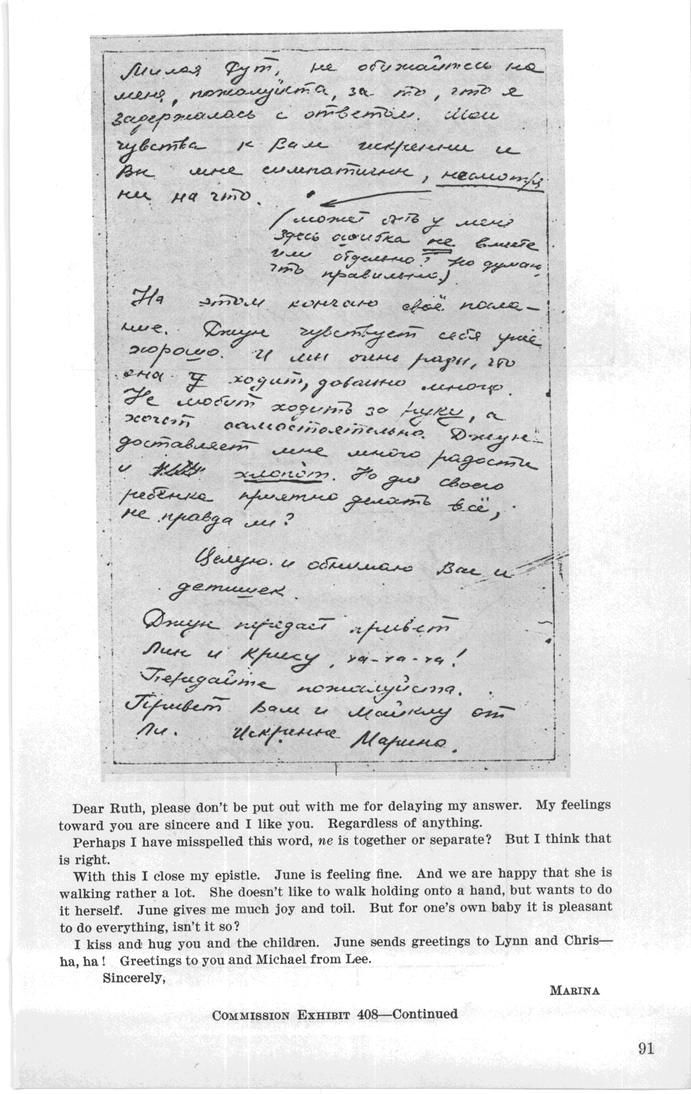 Милая Рут, не обижайтесь на
меня, пожалуйста, за то, что я
задержалась с ответом. Мои
чувства к Вам искренни и
Вы мне симпатичны, несмотря
ни на что.
(может быть у меня
здесь ошибка не вместе
или отдельно? Но думаю,
что правильно.)
На этом кончаю своё посла-
ние. Джун чувствует себя уже
хорошо. И мы очень рады, что
она ходит, довольно много.
Не любит ходить за руку, а
хочет самостоятельно. Джун
доставляет мне много радости
и хлопот. Но для своего
ребёнка приятно делать всё,
не правда ли?
Целую и обнимаю Вас и
детишек.
Джун передаёт привет
Лин и Крису, ха-ха-ха!
Передайте пожалуйста.
Привет Вам и Майклу от
Ли. Искренне Марина.
Dear Ruth, please don't be put out with me for delaying my answer. My feelings
toward you are sincere and I like you. Regardless of anything.
Perhaps I have misspelled this word, ne is together or separate? But I think that
is right.
With this I close my epistle. June is feeling fine. And we are happy that she is
walking rather a lot. She doesn't like to walk holding onto a hand, but wants to do
it herself. June gives me much joy and toil. But for one's own baby it is pleasant
to do everything, isn't it so?
I kiss and hug you and the children. June sends greetings to Lynn and Chris—
ha, ha! Greetings to you and Michael from Lee.
Sincerely,
MARINA
COMMISSION EXHIBIT 408—Continued
91